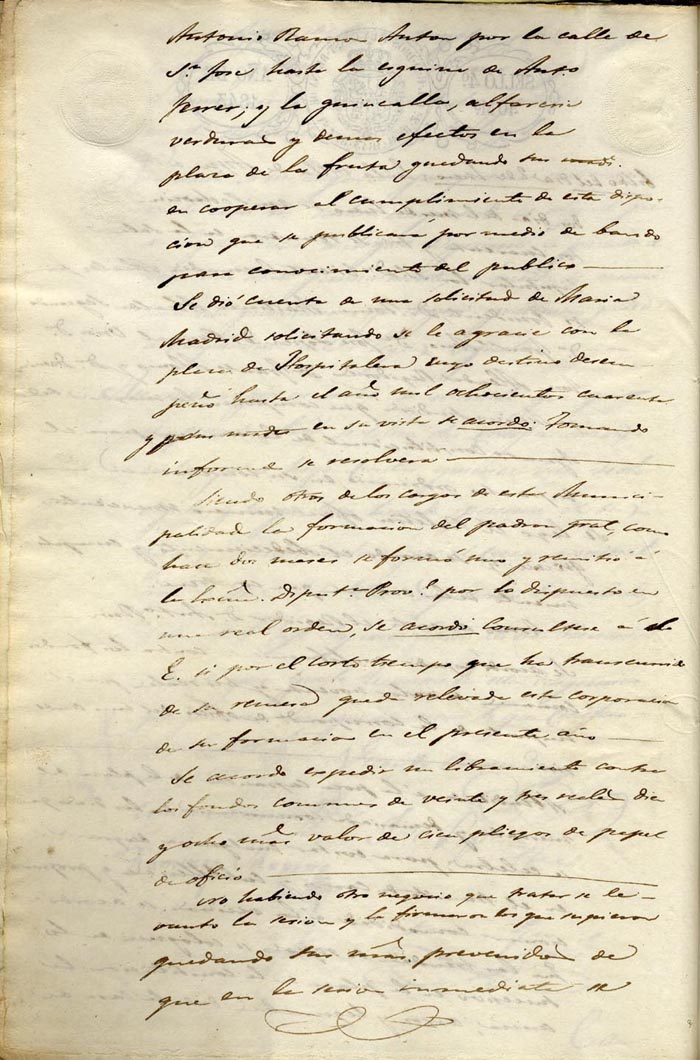 Antonio Ramon Anton por la calle de
Sn. Jose hasta la esquina de Anto
Ferrer; y la quincalla, alfareria
verduras y demas efectos en la
plaza de la fruta quedando sus
en cooperar al cumplimiento de esta dispo-
cion que se publicará por medio de bando
para conocimiento del publico
Se dió cuenta de una solicitud de Maria
Madrid solicitando se le agracie con la
plaza de Hospitalera cuyo destino desem
peñó hasta el año mil ochocientos cuarenta
y en su vista se acordo: Tomando
informe se resolvera
Siendo otros de los cargos de esta Munici-
palidad la formacion del padron gral, como
hace dos meses se formó uno y remitió á
la Excma. Diputn. Provl. por lo dispuesto en
una real orden, se acordó Consultese á
E. si por el corto tiempo que ha transcurrido
de su remesa queda relevada esta corporacion
de su formacion en el presente año
Se acordo expedir un libramiento contra
los fondos comunes de veinte y tres rs. diez
y ocho mrs valor de cien pliegos de papel
de oficio
No habiendo otro negocio que tratar se le-
vantó la sesion y la firmaron los que supieron
quedando sus mds. prevenidos de
que en la sesion inmediata se